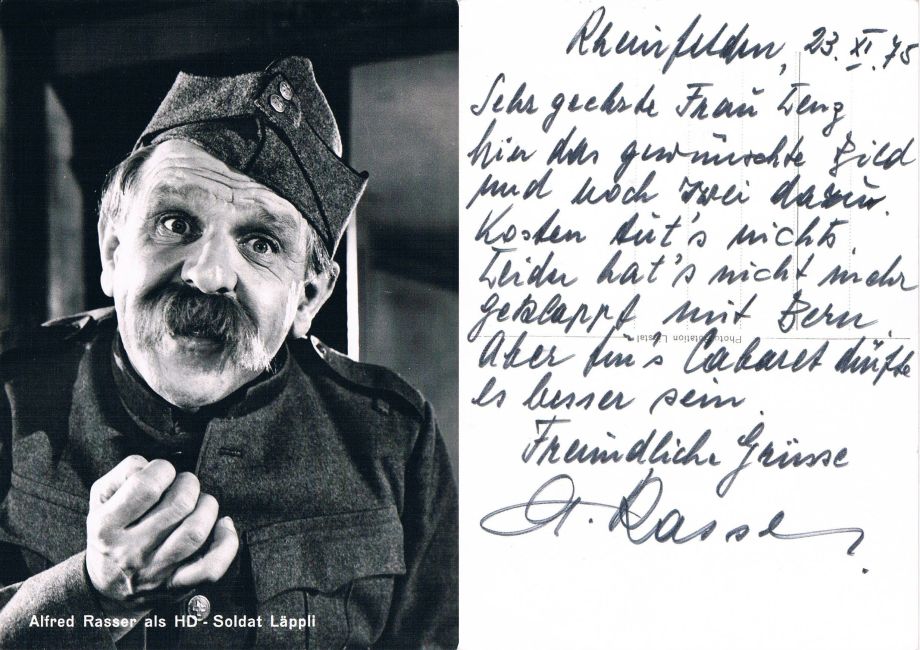 Alfred Rasser als HD - Soldat Läppli
Rheinfelden, 23. XI. 75
Sehr geehrte Frau Lenz
hier das gewünschte Bild
und noch zwei dazu.
Kosten tut's nichts.
Leider hat's nicht mehr
geklappt mit Bern
Aber für's Cabaret dürfte
es besser sein.
Freundliche Grüsse
A. Rasser.
Photo Rotation Liestal